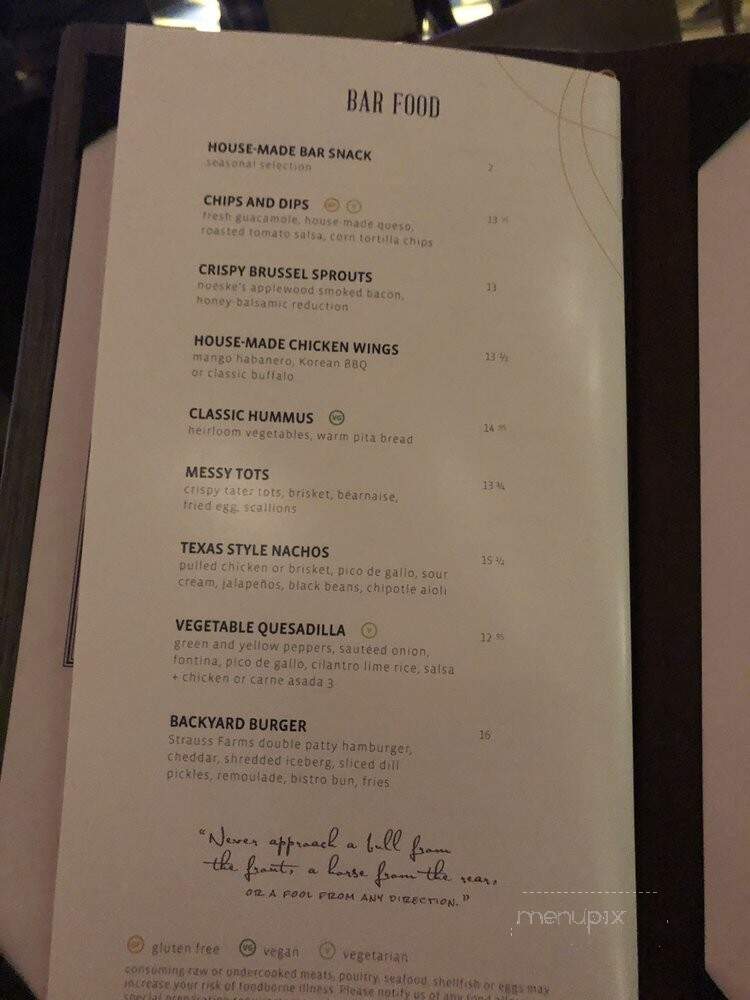 BAR FOOD
HOUSE-MADE BAR SNACK
seasonal selection 2
CHIPS AND DIPS GF V
fresh guacamole, house-made queso, 13
roasted tomato salsa, corn tortilla chips
CRISPY BRUSSEL SPROUTS
nueske's applewood smoked bacon, 13
honey-balsamic reduction
HOUSE-MADE CHICKEN WINGS
mango habanero, Korean BBQ 13 ½
or classic buffalo
CLASSIC HUMMUS VG 14 95
heirloom vegetables, warm pita bread
MESSY TOTS
crispy tater tots, brisket, béarnaise, 13 ¾
fried egg, scallions
TEXAS STYLE NACHOS 15
pulled chicken or brisket, pico de gallo, sour
cream, jalapeños, black beans, chipotle aioli
VEGETABLE QUESADILLA V 12 95
green and yellow peppers, sautéed onion,
fontina, pico de gallo, cilantro lime rice, salsa
+ chicken or carne asada 3
BACKYARD BURGER 16
Strauss Farms double patty hamburger,
cheddar, shredded iceberg, sliced dill
pickles, remoulade, bistro bun, fries
"Never approach a bull from
the front, a horse from the rear,
OR A FOOL FROM ANY DIRECTION."
menupix
GF gluten free VG vegan V vegetarian
consuming raw or undercooked meats, poultry, seafood, shellfish or eggs may
increase your risk of foodborne illness. Please notify us of any food